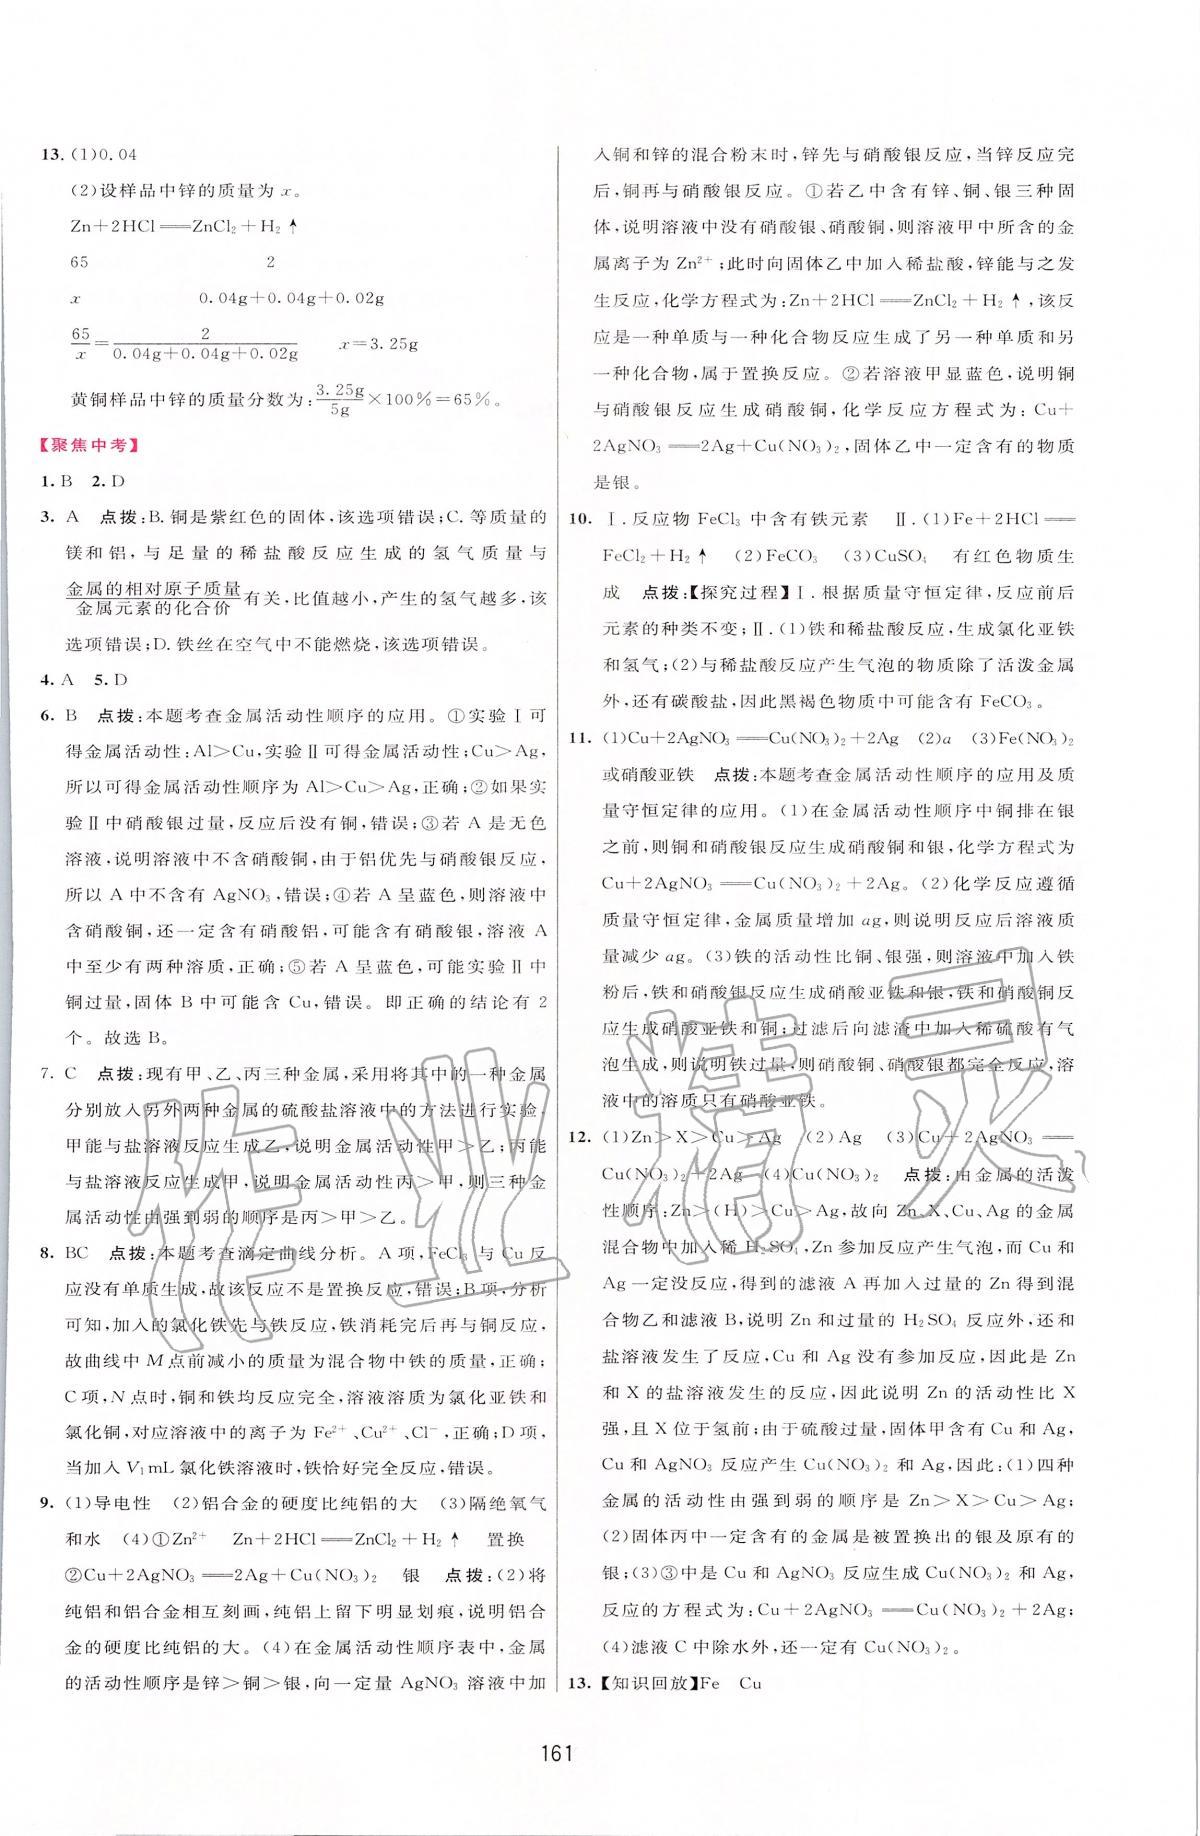 13. (1)0.04
(2)设样品中锌的质量为 x。
Zn+2HCl══ZnCl₂+H₂↑
65 2
x 0.04g+0.04g+0.02g
65/x=2/(0.04g+0.04g+0.02g) x=3.25g
黄铜样品中锌的质量分数为:3.25g/5g×100%=65%。
【聚焦中考】
1. B 2. D
3. A 点拨:B.铜是紫红色的固体,该选项错误;C.等质量的
镁和铝,与足量的稀盐酸反应生成的氢气质量与
金属的相对原子质量/金属元素的化合价 有关,比值越小,产生的氢气越多,该
选项错误;D.铁丝在空气中不能燃烧,该选项错误。
4. A 5. D
6. B 点拨:本题考查金属活动性顺序的应用。①实验Ⅰ可
得金属活动性:Al>Cu,实验Ⅱ可得金属活动性:Cu>Ag,
所以可得金属活动性顺序为 Al>Cu>Ag,正确;②如果实
验Ⅱ中硝酸银过量,反应后没有铜,错误;③若 A 是无色
溶液,说明溶液中不含硝酸铜,由于铝优先与硝酸银反应,
所以 A 中不含有 AgNO₃,错误;④若 A 呈蓝色,则溶液中
含硝酸铜,还一定含有硝酸铝,可能含有硝酸银,溶液 A
中至少有两种溶质,正确;⑤若 A 呈蓝色,可能实验Ⅱ中
铜过量,固体 B 中可能含 Cu,错误。即正确的结论有 2
个。故选 B。
7. C 点拨:现有甲、乙、丙三种金属,采用将其中的一种金属
分别放入另外两种金属的硫酸盐溶液中的方法进行实验,
甲能与盐溶液反应生成乙,说明金属活动性甲>乙;丙能
与盐溶液反应生成甲,说明金属活动性丙>甲,则三种金
属活动性由强到弱的顺序是丙>甲>乙。
8. BC 点拨:本题考查滴定曲线分析。A 项,FeCl₃ 与 Cu 反
应没有单质生成,故该反应不是置换反应,错误;B项,分析
可知,加入的氯化铁先与铁反应,铁消耗完后再与铜反应,
故曲线中 M 点前减小的质量为混合物中铁的质量,正确;
C项,N 点时,铜和铁均反应完全,溶液溶质为氯化亚铁和
氯化铜,对应溶液中的离子为 Fe²⁺、Cu²⁺、Cl⁻,正确;D项,
当加入 V₁mL 氯化铁溶液时,铁恰好完全反应,错误。
9. (1)导电性 (2)铝合金的硬度比纯铝的大 (3)隔绝氧气
和水 (4)①Zn²⁺ Zn+2HCl══ZnCl₂+H₂↑ 置换
②Cu+2AgNO₃══2Ag+Cu(NO₃)₂ 银 点拨:(2)将
纯铝和铝合金相互刻画,纯铝上留下明显划痕,说明铝合
金的硬度比纯铝的大。(4)在金属活动性顺序表中,金属
的活动性顺序是锌>铜>银,向一定量 AgNO₃ 溶液中加
入铜和锌的混合粉末时,锌先与硝酸银反应,当锌反应完
后,铜再与硝酸银反应。①若乙中含有锌、铜、银三种固
体,说明溶液中没有硝酸银、硝酸铜,则溶液甲中所含的金
属离子为 Zn²⁺;此时向固体乙中加入稀盐酸,锌能与之发
生反应,化学方程式为:Zn+2HCl══ZnCl₂+H₂↑,该反
应是一种单质与一种化合物反应生成了另一种单质和另
一种化合物,属于置换反应。②若溶液甲显蓝色,说明铜
与硝酸银反应生成硝酸铜,化学反应方程式为:Cu+
2AgNO₃══2Ag+Cu(NO₃)₂,固体乙中一定含有的物质
是银。
10. Ⅰ.反应物 FeCl₃ 中含有铁元素 Ⅱ.(1)Fe+2HCl══
FeCl₂+H₂↑ (2)FeCO₃ (3)CuSO₄ 有红色物质生
成 点拨:【探究过程】Ⅰ.根据质量守恒定律,反应前后
元素的种类不变;Ⅱ.(1)铁和稀盐酸反应,生成氯化亚铁
和氢气;(2)与稀盐酸反应产生气泡的物质除了活泼金属
外,还有碳酸盐,因此黑褐色物质中可能含有 FeCO₃。
11. (1)Cu+2AgNO₃══Cu(NO₃)₂+2Ag (2)a (3)Fe(NO₃)₂
或硝酸亚铁 点拨:本题考查金属活动性顺序的应用及质
量守恒定律的应用。(1)在金属活动性顺序中铜排在银
之前,则铜和硝酸银反应生成硝酸铜和银,化学方程式为
Cu+2AgNO₃══Cu(NO₃)₂+2Ag。(2)化学反应遵循
质量守恒定律,金属质量增加 ag,则说明反应后溶液质
量减少 ag。(3)铁的活动性比铜、银强,则溶液中加入铁
粉后,铁和硝酸银反应生成硝酸亚铁和银,铁和硝酸铜反
应生成硝酸亚铁和铜;过滤后向滤渣中加入稀硫酸有气
泡生成,则说明铁过量,则硝酸铜、硝酸银都完全反应,溶
液中的溶质只有硝酸亚铁。
12. (1)Zn>X>Cu>Ag (2)Ag (3)Cu+2AgNO₃══
Cu(NO₃)₂+2Ag (4)Cu(NO₃)₂ 点拨:由金属的活泼
性顺序:Zn>(H)>Cu>Ag,故向 Zn、X、Cu、Ag 的金属
混合物中加入稀 H₂SO₄,Zn 参加反应产生气泡,而 Cu 和
Ag 一定没反应,得到的滤液 A 再加入过量的 Zn 得到混
合物乙和滤液 B,说明 Zn 和过量的 H₂SO₄ 反应外,还和
盐溶液发生了反应,Cu 和 Ag 没有参加反应,因此是 Zn
和 X 的盐溶液发生的反应,因此说明 Zn 的活动性比 X
强,且 X 位于氢前;由于硫酸过量,固体甲含有 Cu 和 Ag,
Cu 和 AgNO₃ 反应产生 Cu(NO₃)₂ 和 Ag,因此:(1)四种
金属的活动性由强到弱的顺序是 Zn>X>Cu>Ag;
(2)固体丙中一定含有的金属是被置换出的银及原有的
银;(3)③中是 Cu 和 AgNO₃ 反应生成 Cu(NO₃)₂ 和 Ag,
反应的方程式为:Cu+2AgNO₃══Cu(NO₃)₂+2Ag;
(4)滤液 C 中除水外,还一定有 Cu(NO₃)₂。
13. 【知识回放】Fe Cu
161
作业精灵